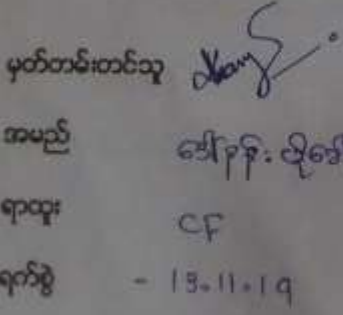 မှတ်တမ်းတင်သူ
အမည် ဒေါ်နန်း
ရာထူး CF
ရက်စွဲ - 13.11.19